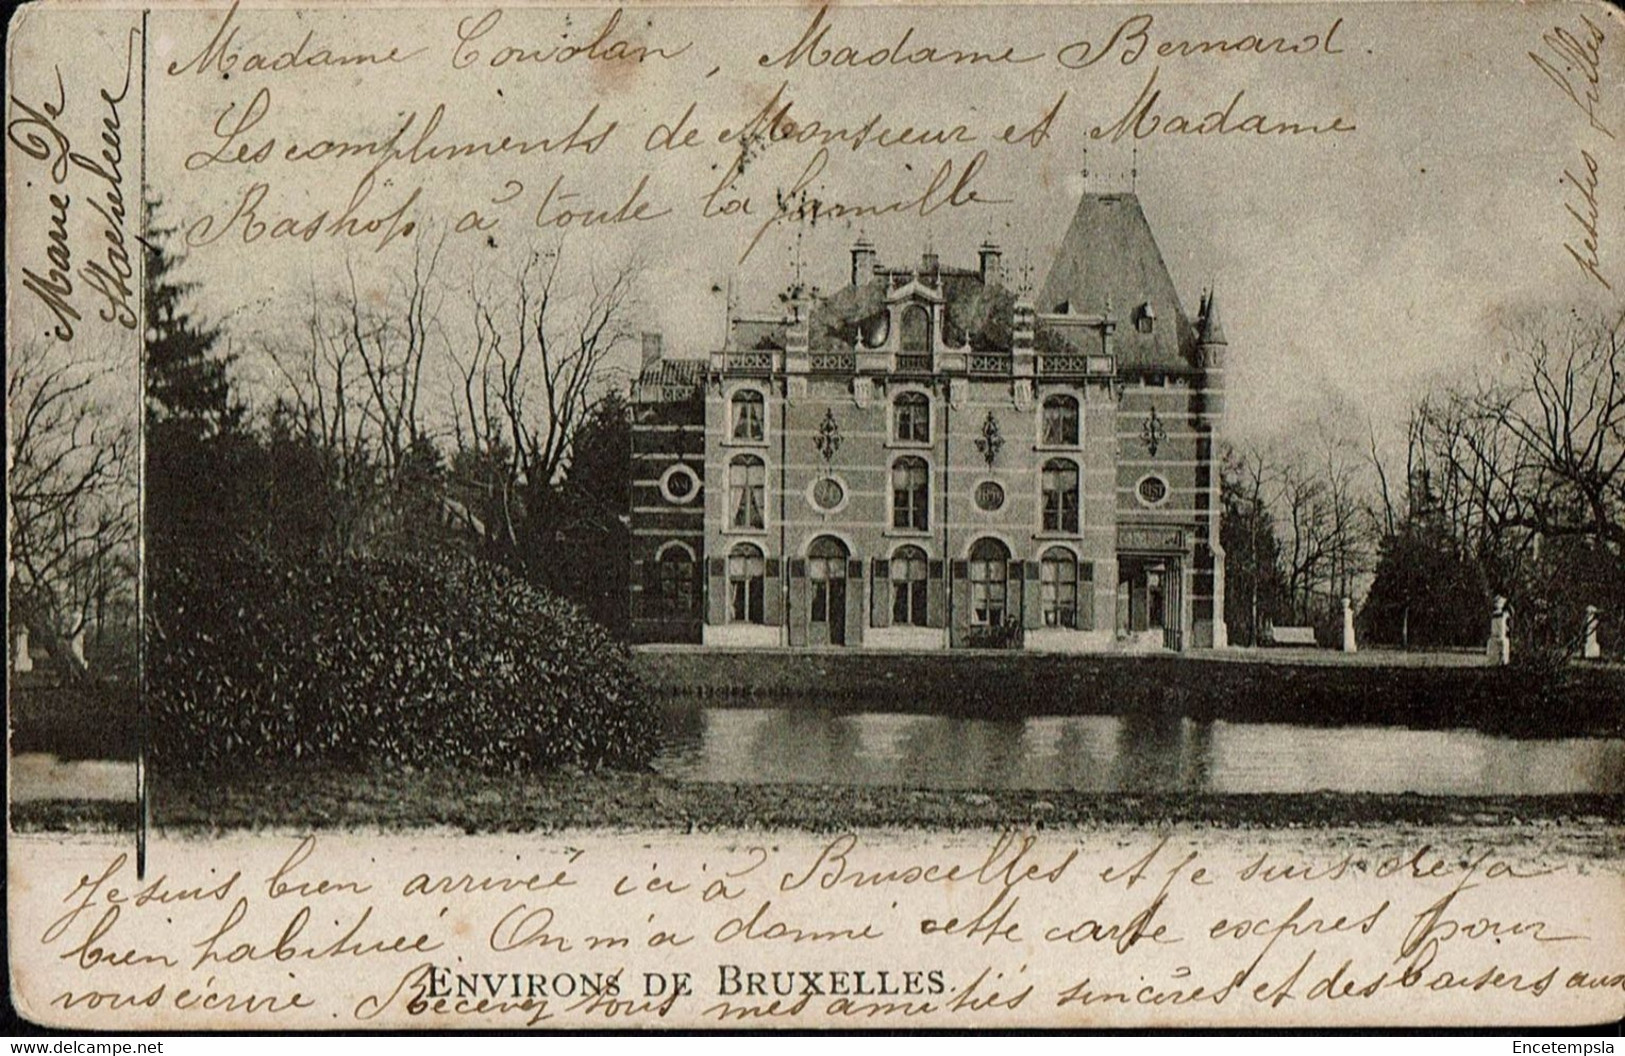 Madame Couvolan, Madame Bernard.
Les compliments de Monsieur et Madame
Rashop à toute la famille
Marie De
Staeheleere
Je suis bien arrivée ici à Bruxelles et je suis deja
bien habituée On m'a donné cette carte exprès pour
vous écrire. Recevez tous mes amitiés sincères et des baisers aux
petites filles.
ENVIRONS DE BRUXELLES.
delcampe.net
Encetempsla